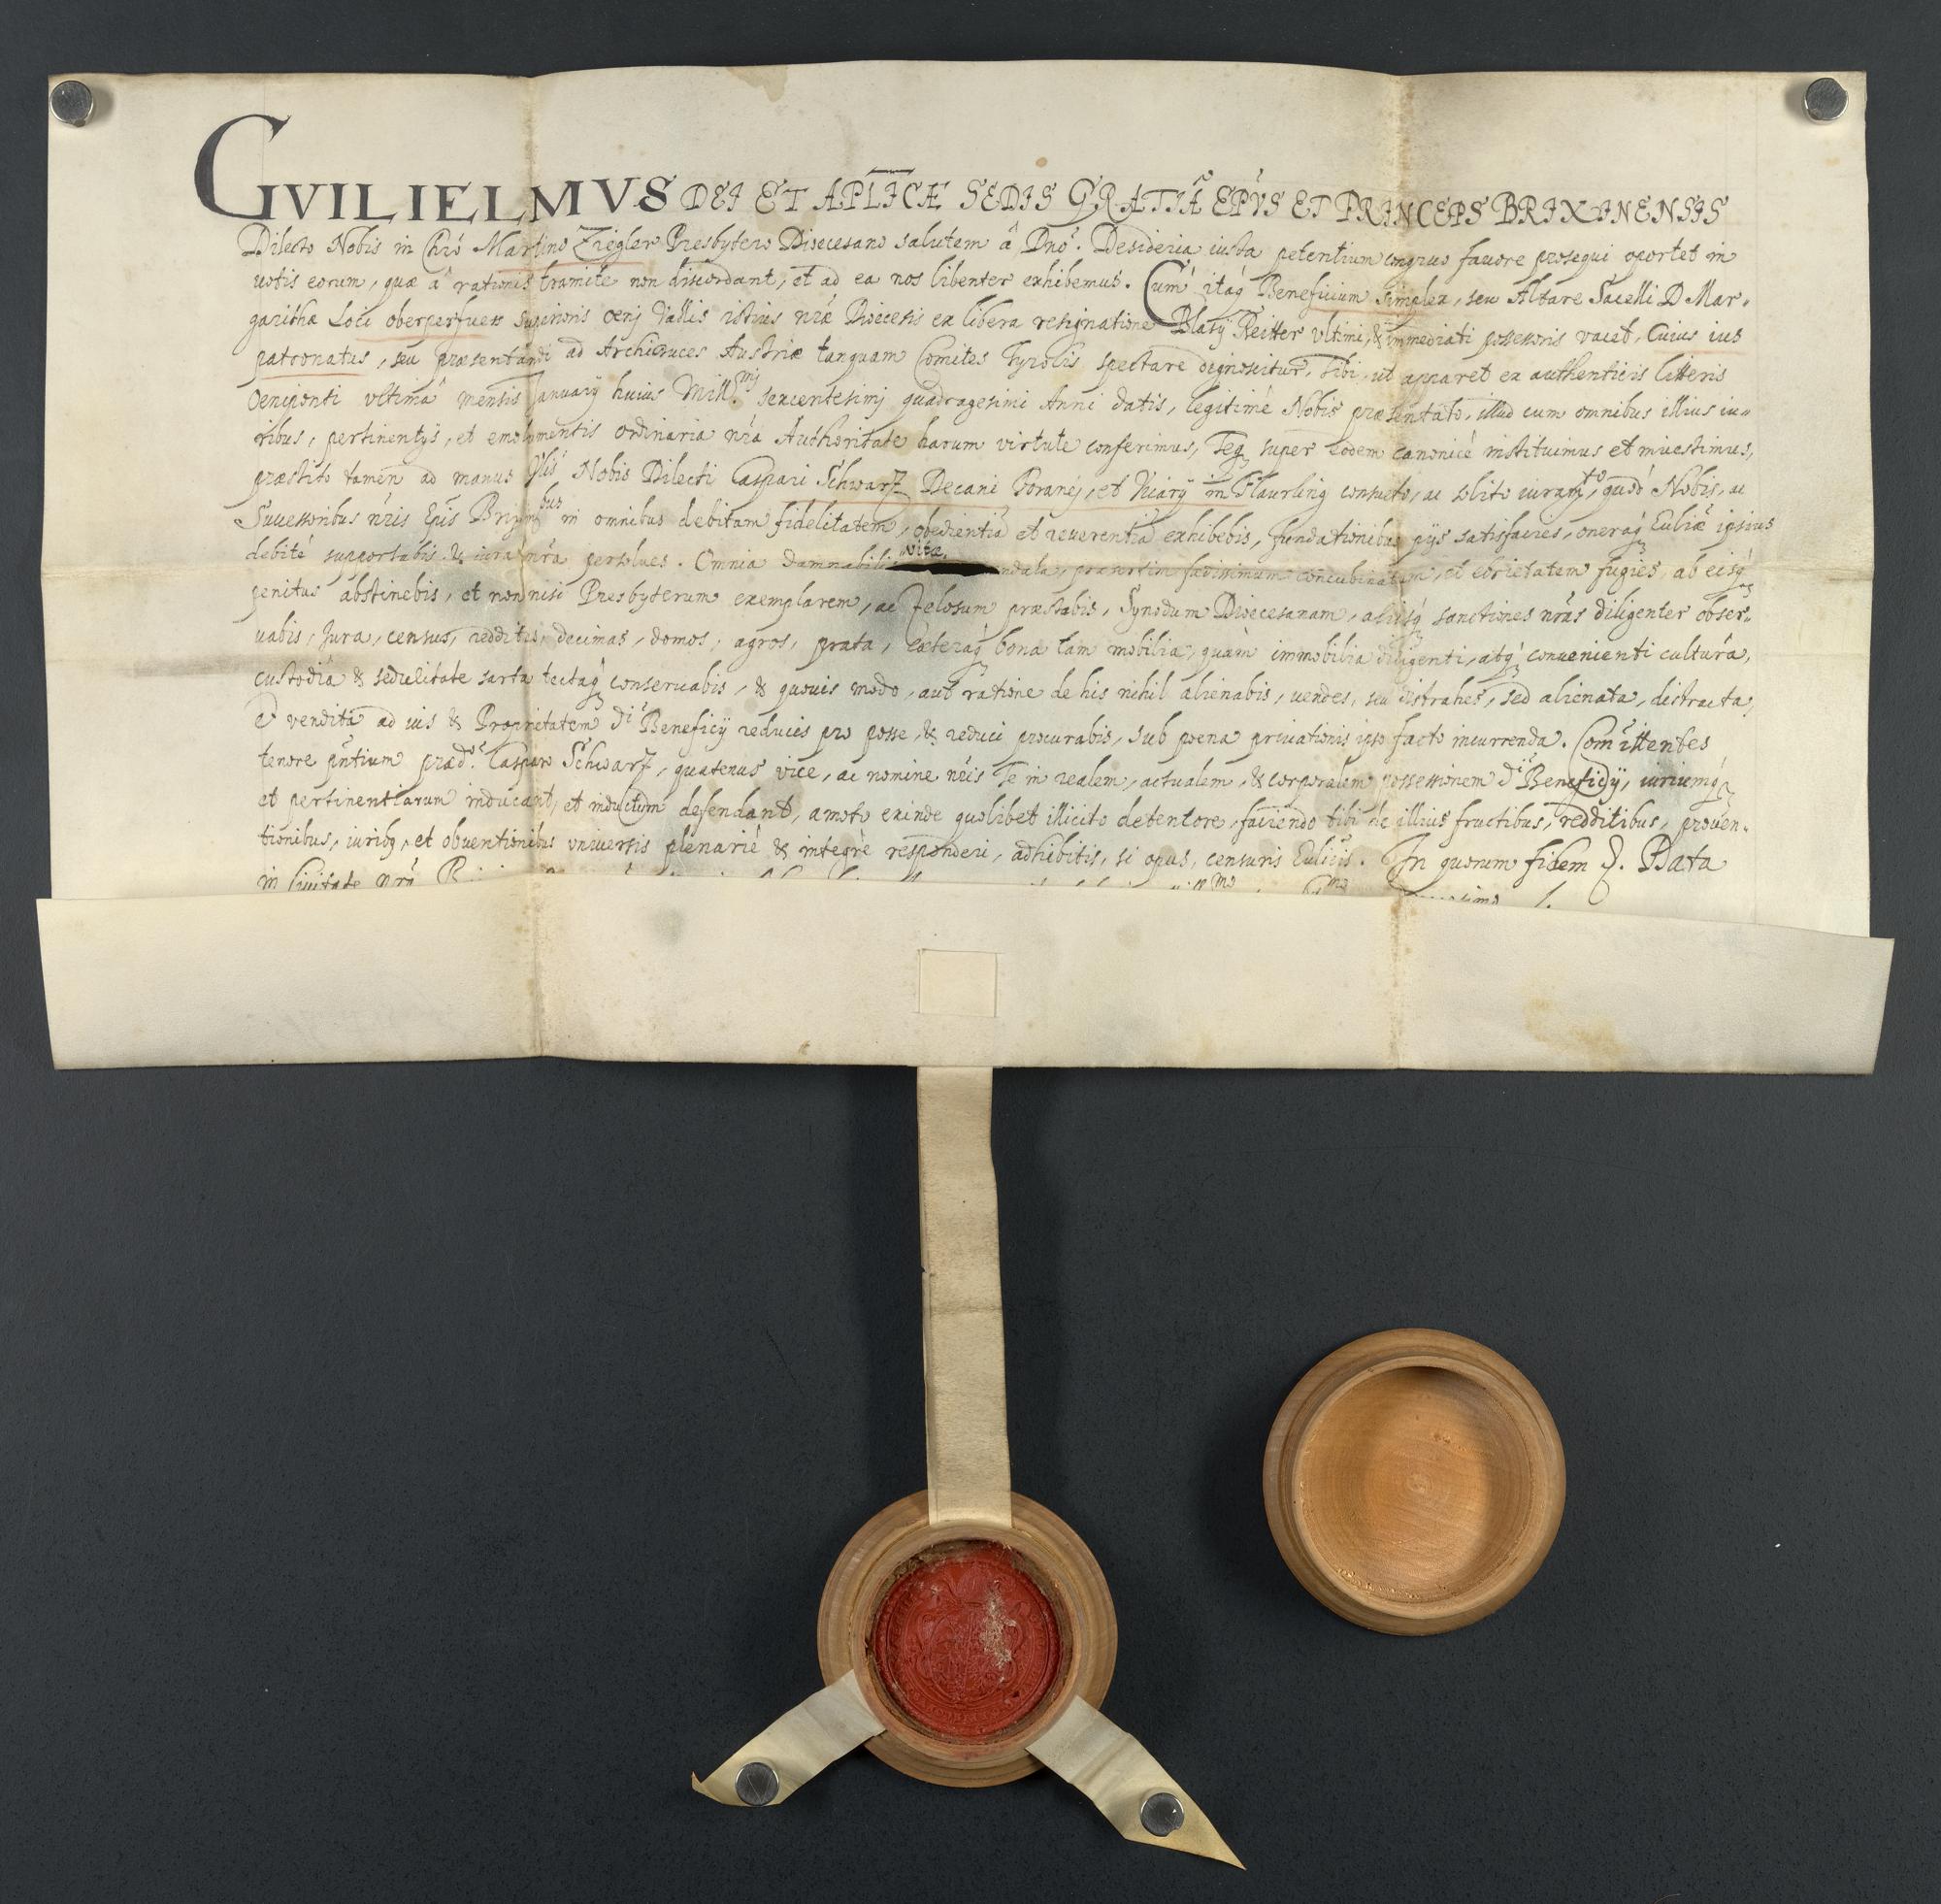 GVILIELMVS DEI ET APLICÆ SEDIS GRATIÂ EPVS ET PRINCEPS BRIXINENSIS
Dilecto Nobis in Chrō Martino Ziegler Presbytero Dioecesano salutem â Dnō. Desideria iusta petentium congruo favore prosequi oportet in
uotis eorum, quæ â rationis tramite non discordant, et ad ea nos libenter exhibemus. Cum itaq Beneficium simplex, seu Altare Sacelli D Mar-
garithæ Loci oberperfuess Superioris Oenj Vallis istius nrǽ Dioecesis ex libera resignatione Blasÿ Reitter vltimi, & immediati possessoris vacet, Cuius ius
patronatus, seu præsentandi ad Archiduces Austriæ tanquam Comites Tyrolis spectare dignoscitur, Tibi, ut apparet ex authenticis litteris
Oeniponti vltimâ mensis Januarÿ huius Mill.mj sexcentesimj quadragesimi Anni datis, legitimé Nobis præsentato, illud cum omnibus illius iu-
ribus, pertinentÿs, et emolumentis ordinaria nrā Authoritate harum virtute conferimus, Teq super eodem canonicé instituimus et inuestimus,
præstito tamen ad manus Nobis Dilecti Caspari Schwarz Decani Foranej, et Vicarÿ in Flaurling consueto, ac solito iuramto, quod Nobis, ac
Successoribus nrīs Epīs Brixinbus in omnibus debitam fidelitatem, obedientiā et reuerentiā exhibebis, fundationibus pÿs satisfacies, oneraq Ecclīæ ipsius
debité supportabis & iura nrā persolues. Omnia damnabilis vitæ ndala, præsertim foedissimum concubinatum, et ebrietatem fugies, ab eisq
penitus abstinebis, et non nisi Presbyterum exemplarem, ac Zelosum præstabis, Synodum Dioecesanam, aliasq sanctiones nrās diligenter obser-
uabis, Jura, census, redditus, decimas, domos, agros, prata, cæteraq bona tam mobilia, quàm immobilia diligenti, atq conuenienti culturâ,
custodiâ & sedulitate sarta tectaq conseruabis, & quouis modo, aut ratione de his nihil alienabis, uendes, seu distrahes, sed alienata, distracta,
& vendita ad ius & Proprietatem di Beneficÿ reduces pro posse, & reduci procurabis, sub poena priuationis ipso facto incurrenda. Comittentes
tenore pntium præd. Casparo Schwarz, quatenus vice, ac nomine nrīs Te in realem, actualem, & corporalem possessionem di Beneficÿ, iuriumq
et pertinentiarum inducant, et inductum defendant, amoto exinde quolibet illicito detentore, faciendo tibi de illius fructibus, redditibus, prouen-
tionibus, iuribq, et obuentionibus vniuersis plenarié & integrè responderi, adhibitis, si opus, censuris Ecclicis. In quorum fidem &. Data
in Ciuitate nrā